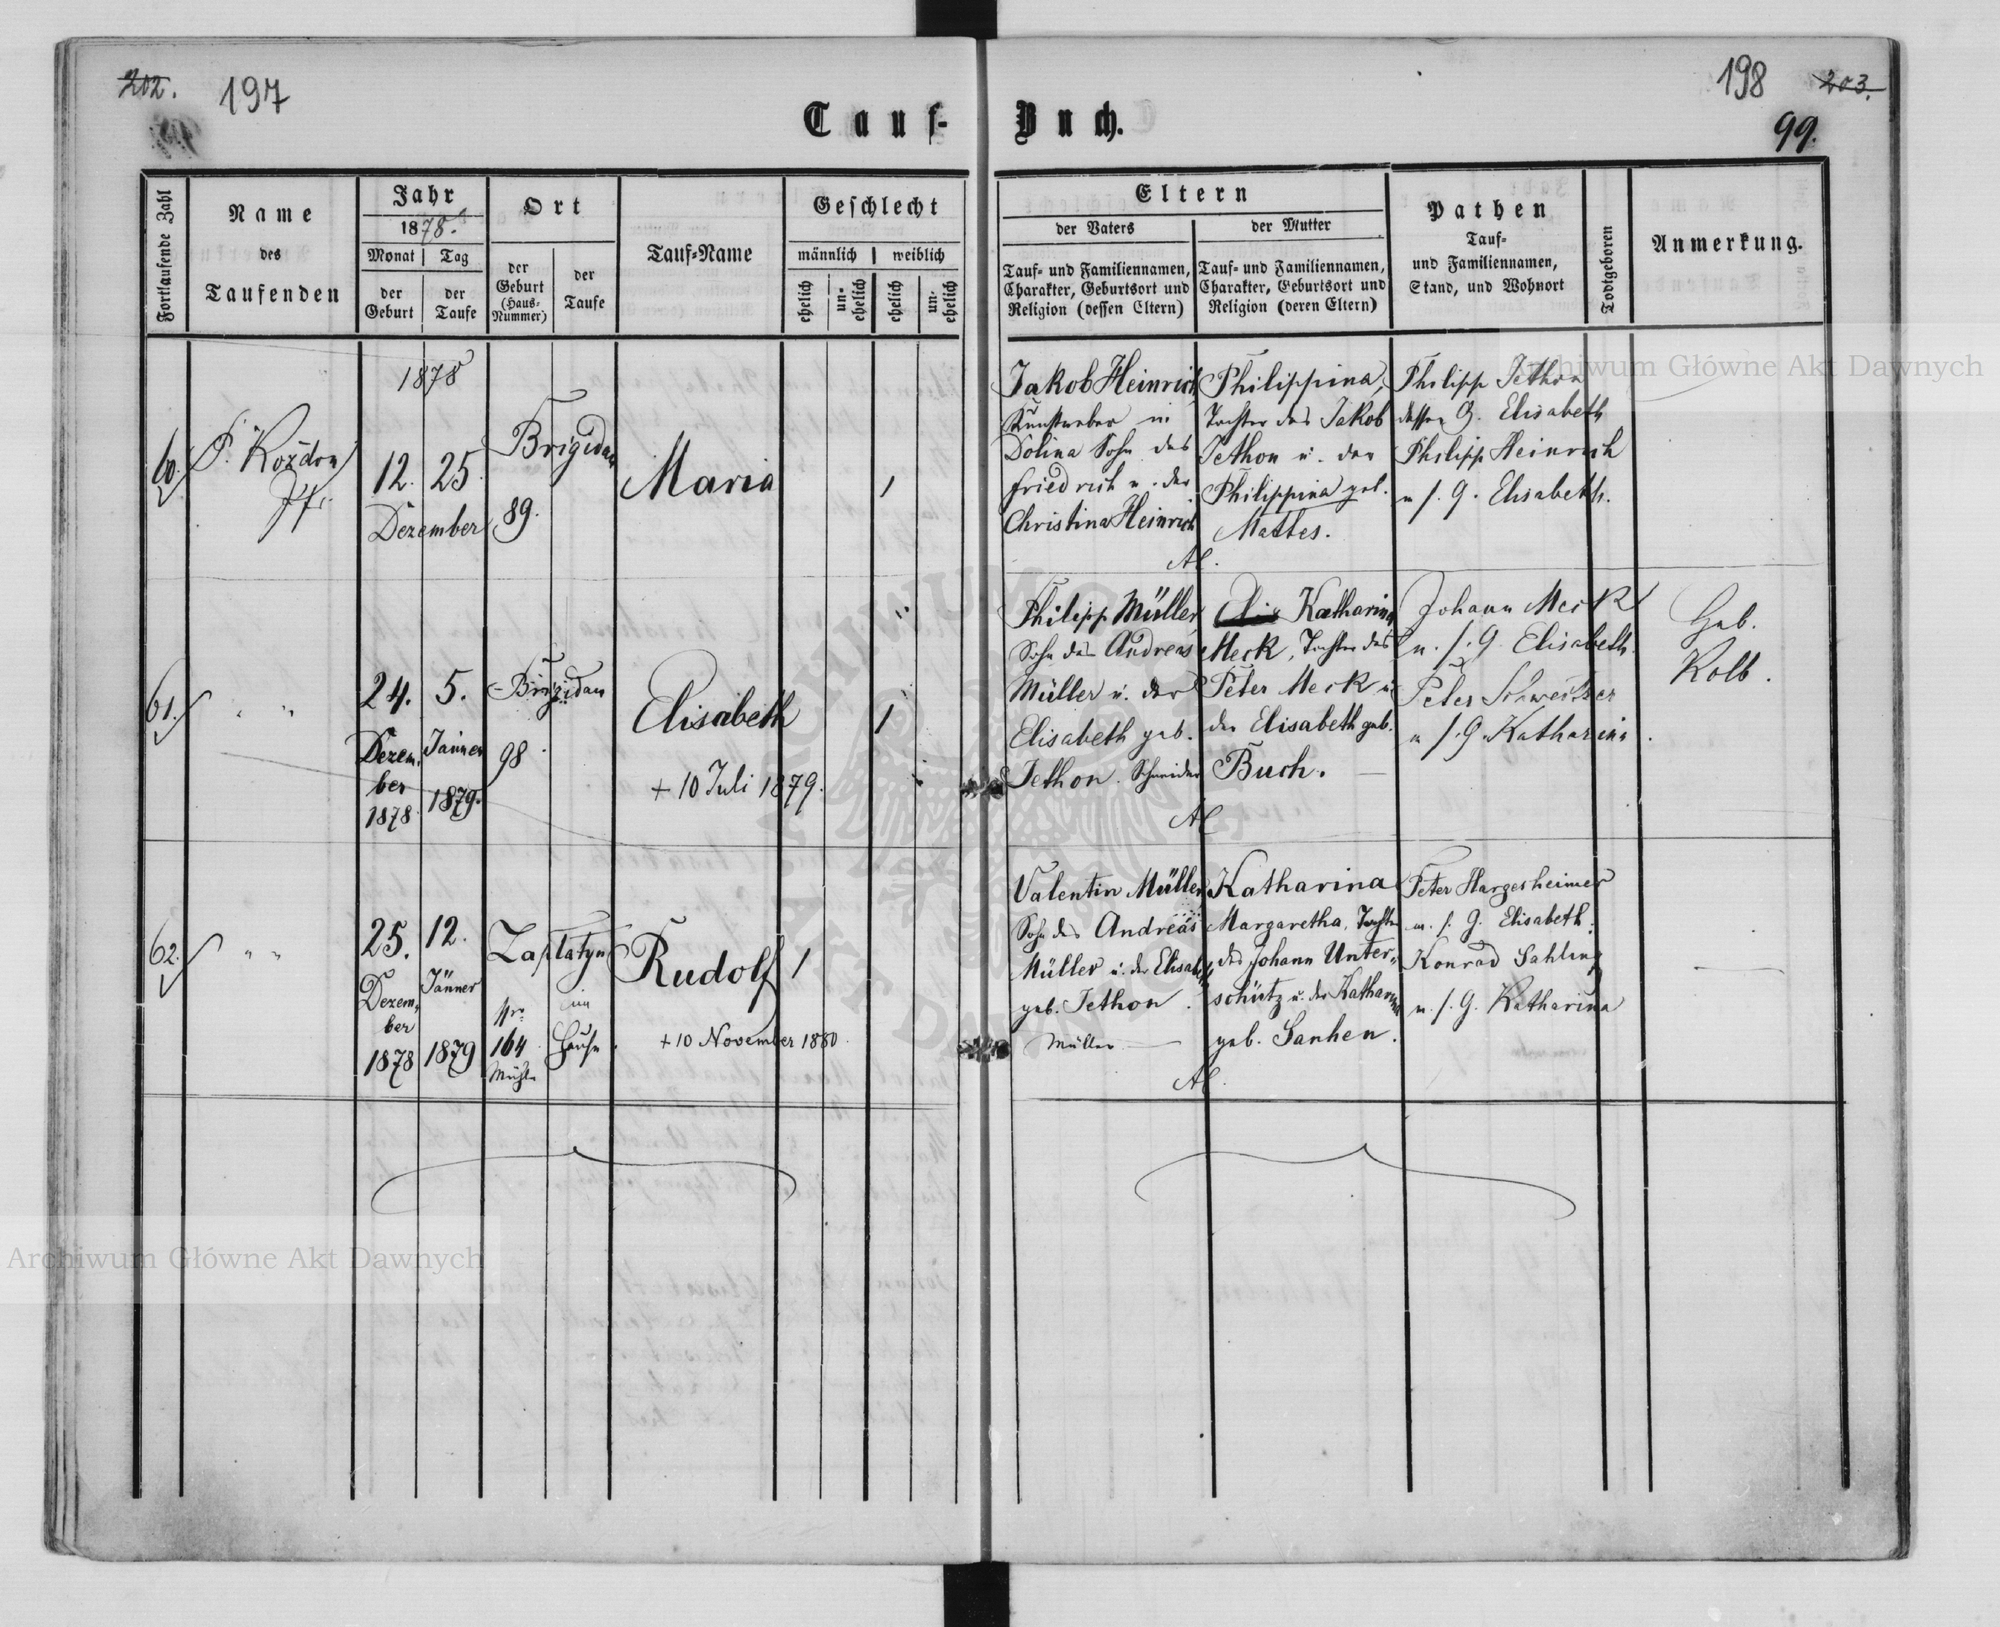 202. 197
198 203.
99.
Tauf-Buch.
Fortlaufende Zahl
Name
des
Taufenden
Jahr
1878.
Monat Tag
der Geburt
der Taufe
Ort
der
Geburt
(Haus-
Nummer)
der
Taufe
Tauf-Name
Geschlecht
männlich weiblich
ehelich
un-
ehelich
ehelich
un-
ehelich
Eltern
der Vaters
der Mutter
Tauf- und Familiennamen,
Charakter, Geburtsort und
Religion (dessen Eltern)
Tauf- und Familiennamen,
Charakter, Geburtsort und
Religion (deren Eltern)
Pathen
Tauf-
und Familiennamen,
Stand, und Wohnort
Todtgeboren
Anmerkung.
1878
60.
P. Kozdon
12. 25.
Dezember
Brigidau
89.
Maria
1
Jakob Heinrich
in
Dolina Sohn des
Friedrich u. der
Christina Heinrich
Philippina,
Tochter des Jakob
Jethon u. der
Philippina geb.
Mattes.
AC.
Philipp Jethon
dessen G. Elisabeth
Philipp Heinrich
u s. G. Elisabeth.
61.
" "
24. 5.
Dezem-
ber
1878
Jänner
1879.
Brigidau
98.
Elisabeth
+ 10 Juli 1879.
1
Philipp Müller,
Sohn des Andreas
Müller u. der
Elisabeth geb.
Jethon. Schneider
Katharina
Merk, Tochter des
Peter Merk u
der Elisabeth geb.
Buch.
AC
Johann Merk
u. s. G. Elisabeth.
Peter Schweitzer
u s. G. Katharina.
Geb.
Kolb.
62.
" "
25. 12.
Dezem-
ber
1878
Jänner
1879
Zaplatyn
Nro
164
Mühle
im
Hause.
Rudolf
+ 10 November 1880.
1
Valentin Müller
Sohn des Andreas
Müller u. der Elisabeth
geb. Jethon.
Müller
Katharina
Margaretha, Tochter
des Johann Unter-
schütz u. der Katharina
geb. Sanhen.
AC.
Peter Hargesheimer
u. s. G. Elisabeth.
Konrad Sahling
u. s. G. Katharina
Archiwum Główne Akt Dawnych
Archiwum Główne Akt Dawnych
ARCHIWUM GŁÓWNE AKT DAWNYCH